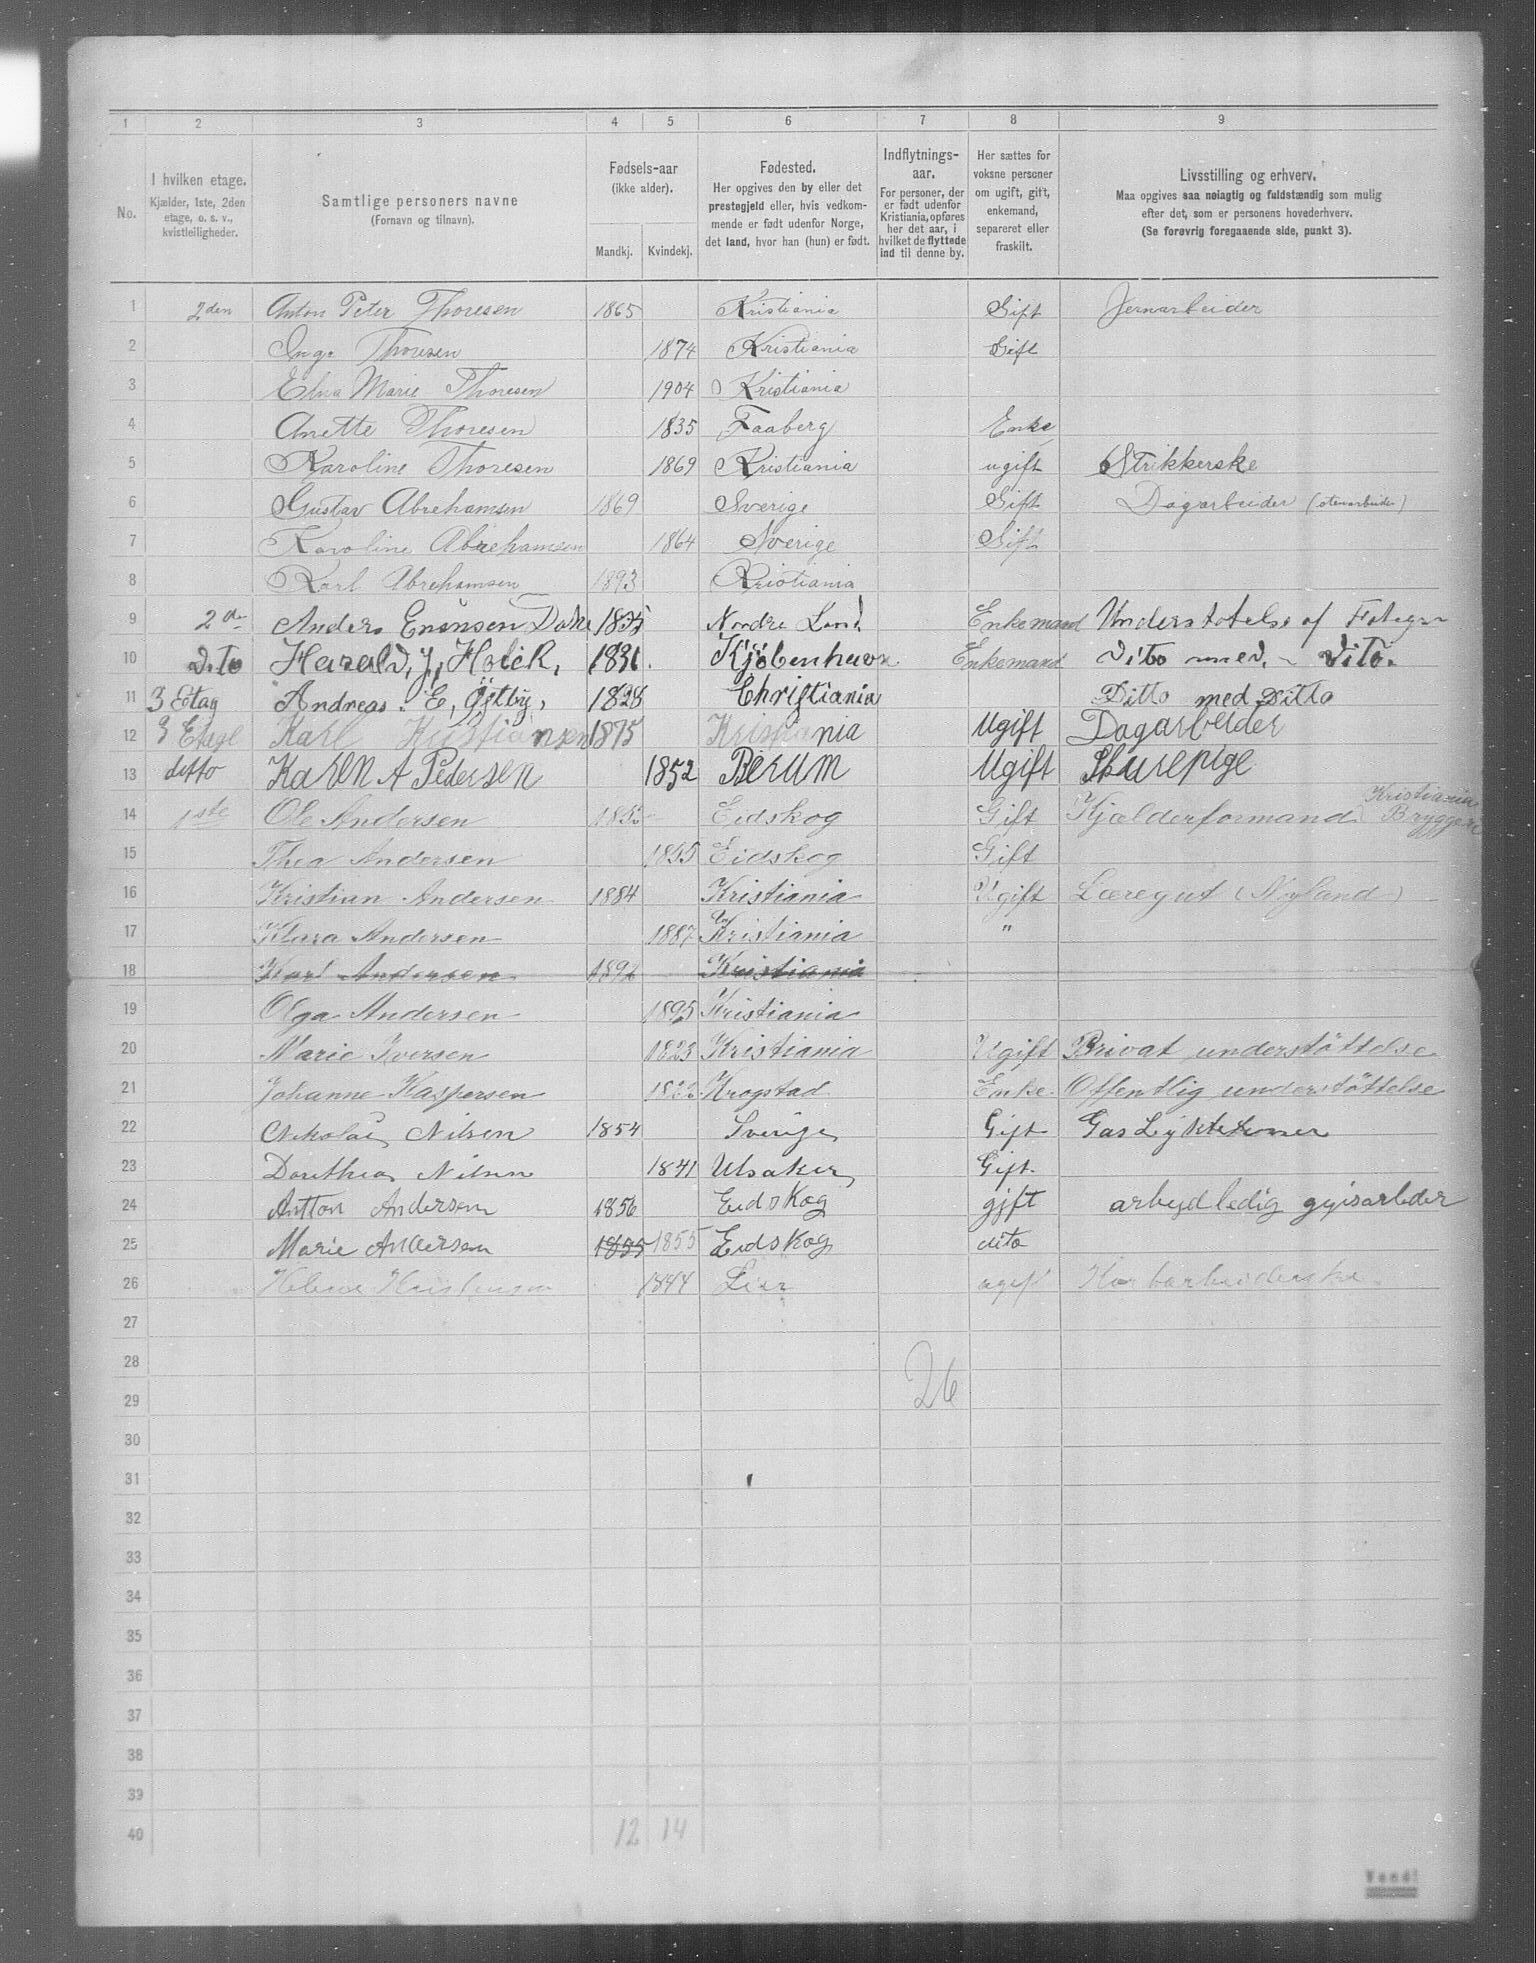 1 2 3 4 5 6 7 8 9
No.
I hvilken etage.
Kjælder, 1ste, 2den
etage, o. s. v.,
kvistleiligheder.
Samtlige personers navne
(Fornavn og tilnavn).
Fødsels-aar
(ikke alder).
Mandkj. Kvindekj.
Fødested.
Her opgives den by eller det
prestegjeld eller, hvis vedkom-
mende er født udenfor Norge,
det land, hvor han (hun) er født.
Indflytnings-
aar.
For personer, der
er født udenfor
Kristiania, opføres
her det aar, i
hvilket de flyttede
ind til denne by.
Her sættes for
voksne personer
om ugift, gift,
enkemand,
separeret eller
fraskilt.
Livsstilling og erhverv.
Maa opgives saa nøiagtig og fuldstændig som mulig
efter det, som er personens hovederhverv.
(Se forøvrig foregaaende side, punkt 3).
1 2den Anton Peter Thoresen 1865 Kristiania Gift Jernarbeider
2 Inga Thoresen 1874 Kristiania Gift
3 Edna Marie Thoresen 1904 Kristiania
4 Anette Thoresen 1835 Faaberg Enke
5 Karoline Thoresen 1869 Kristiania ugift Strikkerske
6 Gustav Abrehamsen 1869 Sverige Gift Dagarbeider (stenarbeider)
7 Karoline Abrehamsen 1864 Sverige Gift
8 Karl Abrehamsen 1893 Kristiania
9 2de Anders 1835 Nordre Land Enkemand Understøtelse af
10 Dito Harald, J, Holck, 1831. Kjöbenhavn Enkemand Dito med - Dito.
11 3 Etag Andreas. E, Östby, 1828 Christiania Ditto med Ditto
12 3 Etage Karl Kristiansen 1875 Kristiania Ugift Dagarbeider
13 ditto Karen A Pedersen 1852 Berum Ugift Skurepige
14 1ste Ole Andersen Eidskog Gift Kjælderformand Kristiania Bryggeri
15 Thea Andersen 1855 Eidskog Gift
16 Kristian Andersen 1884 Kristiania Ugift Læregut (Nyland)
17 Klara Andersen 1887 Kristiania "
18 Karl Andersen 1892 Kristiania
19 Olga Andersen 1895 Kristiania
20 Marie Iversen 1823 Kristiania Ugift Privat understöttelse
21 Johanne Kaspersen 1822 Krogstad Enke Offentlig understöttelse
22 Nikolai Nilsen 1854 Sverige Gift Gas Lyktetener
23 Dorethea Nilsen 1841 Ulsaker Gift.
24 Antton Andersen 1856 Eidskog gjft arbejdledig gjisarbeder
25 Marie Andersen 1855 1855 Eidskog dito
26 Helene 1844 Lier ugift
27
28
29 26
30
31
32
33
34
35
36
37
38
39
40 12 14
Vend!